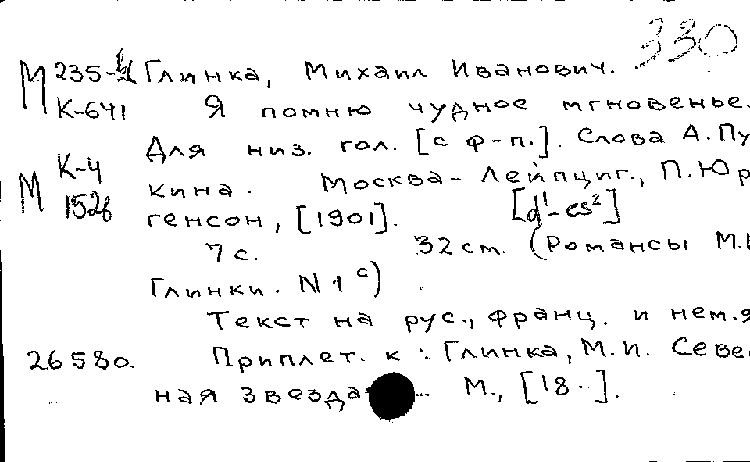 330
М 235-4 Глинка, Михаил Иванович.
К-641 Я помню чудное мгновенье.
Для низ. гол. [с ф-п.]. Слова А. Пу
М К-4 кина. Москва - Лейпциг, П. Юр
1526 генсон, [1901]. [d¹-es²]
7 с. 32 см. (Романсы М.И
Глинки. N 1 с)
Текст на рус., франц. и нем. я
26580. Приплет. к: Глинка, М.И. Севе
ная звезда ... М., [18..].